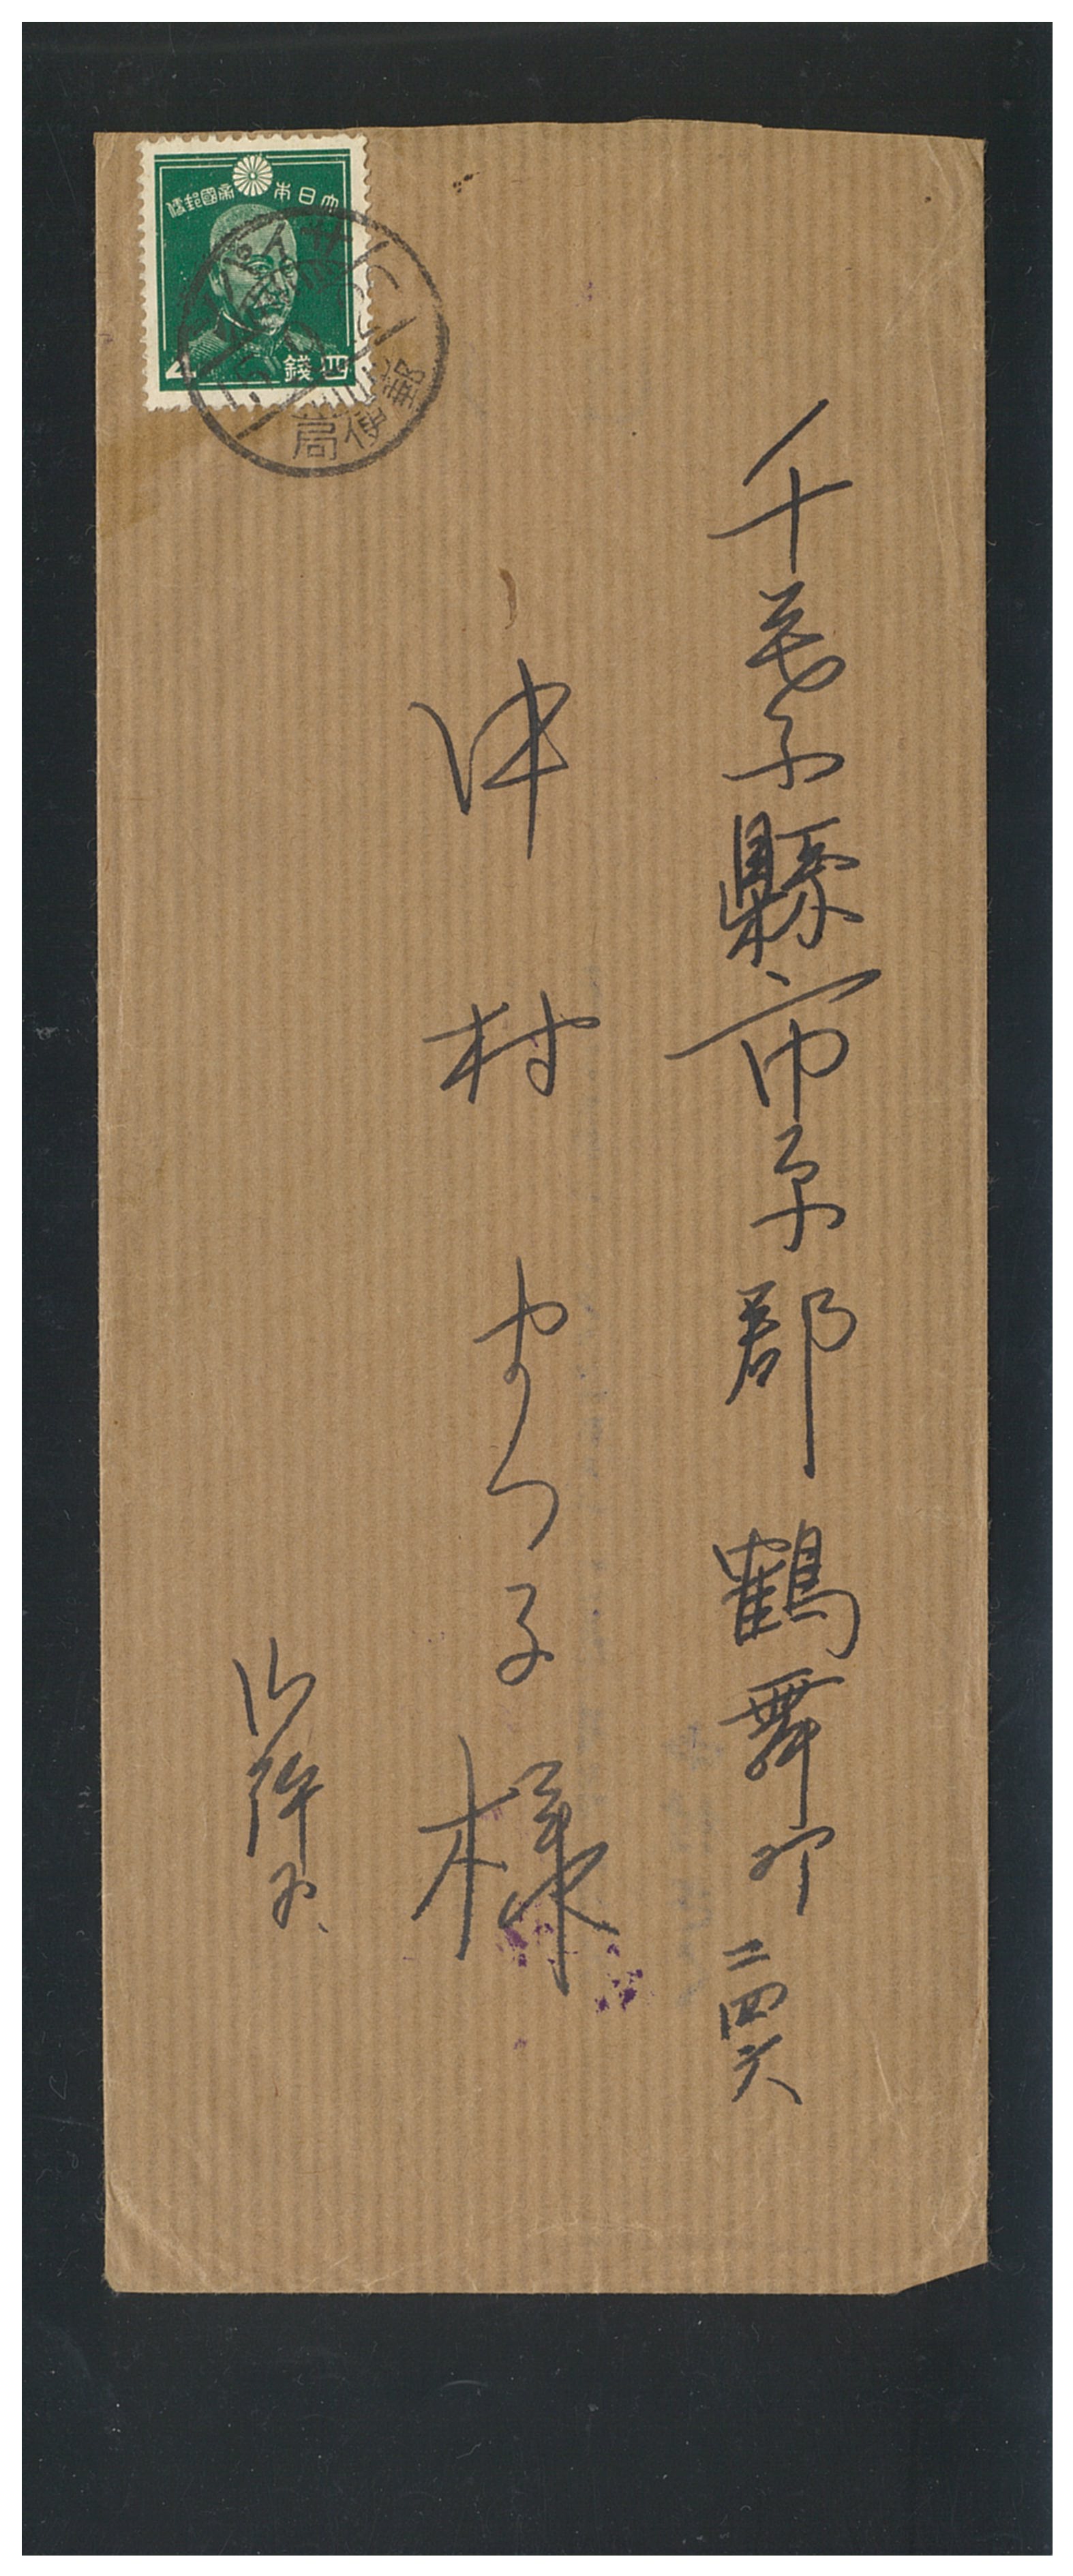 千葉縣市原郡鶴舞町二四六
沖村まつ子様
御許に
大日本帝國郵便
4 四錢
郵便